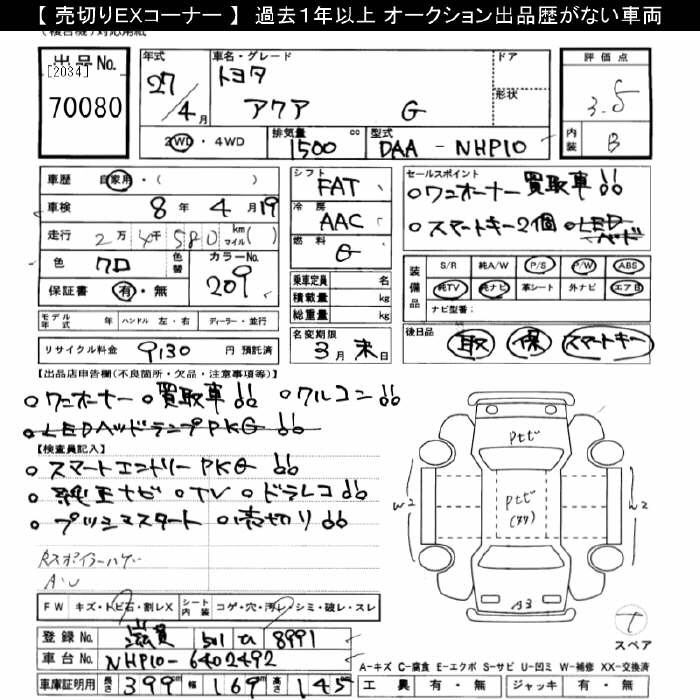 【 売切りEXコーナー 】 過去１年以上 オークション出品歴がない車両
出品No.
[2034]
70080
年式
27/4月
車名・グレード
トヨタ
アクア G
ドア
形状
2WD・4WD
排気量 1500 cc
型式 DAA - NHP10
評価点
3.5
内装 B
車歴 自家用・( )
車検 8年 4月 19
走行 2万 4千 580 km マイル( )
色 クロ
色替
カラーNo. 209
保証書 有・無
シフト FAT
冷房 AAC
燃料 G
乗車定員 名
積載量 kg
総重量 kg
セールスポイント
○ワンオーナー 買取車!!
○スマートキー2個 ○LEDヘッド
装備品
S/R 純A/W P/S P/W ABS
純TV 純ナビ 革シート 外ナビ エアB
ナビ型番：
モデル年式 年 ハンドル 左・右 ディーラー・並行
リサイクル料金 9130 円 預託済
名変期限 3月末日
後日品 取 保 スマートキー
【出品店申告欄(不良箇所・欠品・注意事項等)】
○ワンオーナー ○買取車!! ○ワルコン!!
○LEDヘッドランプPKG!!
【検査員記入】
○スマートエントリーPKG!!
○純正ナビ ○TV ○ドラレコ!!
○プッシュスタート ○売切り!!
Rスポイラーハゲ
A・U
Pセビ
Pセビ
W2
A3
スペア
FW キズ・トビ石・割レX
シート内装 コゲ・穴・汚レ・シミ・破レ・スレ
登録No. 滋賀 501 ひ 8991
車台No. NHP10-6402492
車庫証明用 長さ 399 幅 169 高さ 145
A-キズ C-腐食 E-エクボ S-サビ U-凹ミ W-補修 XX-交換済
工具 有・無 ジャッキ 有・無